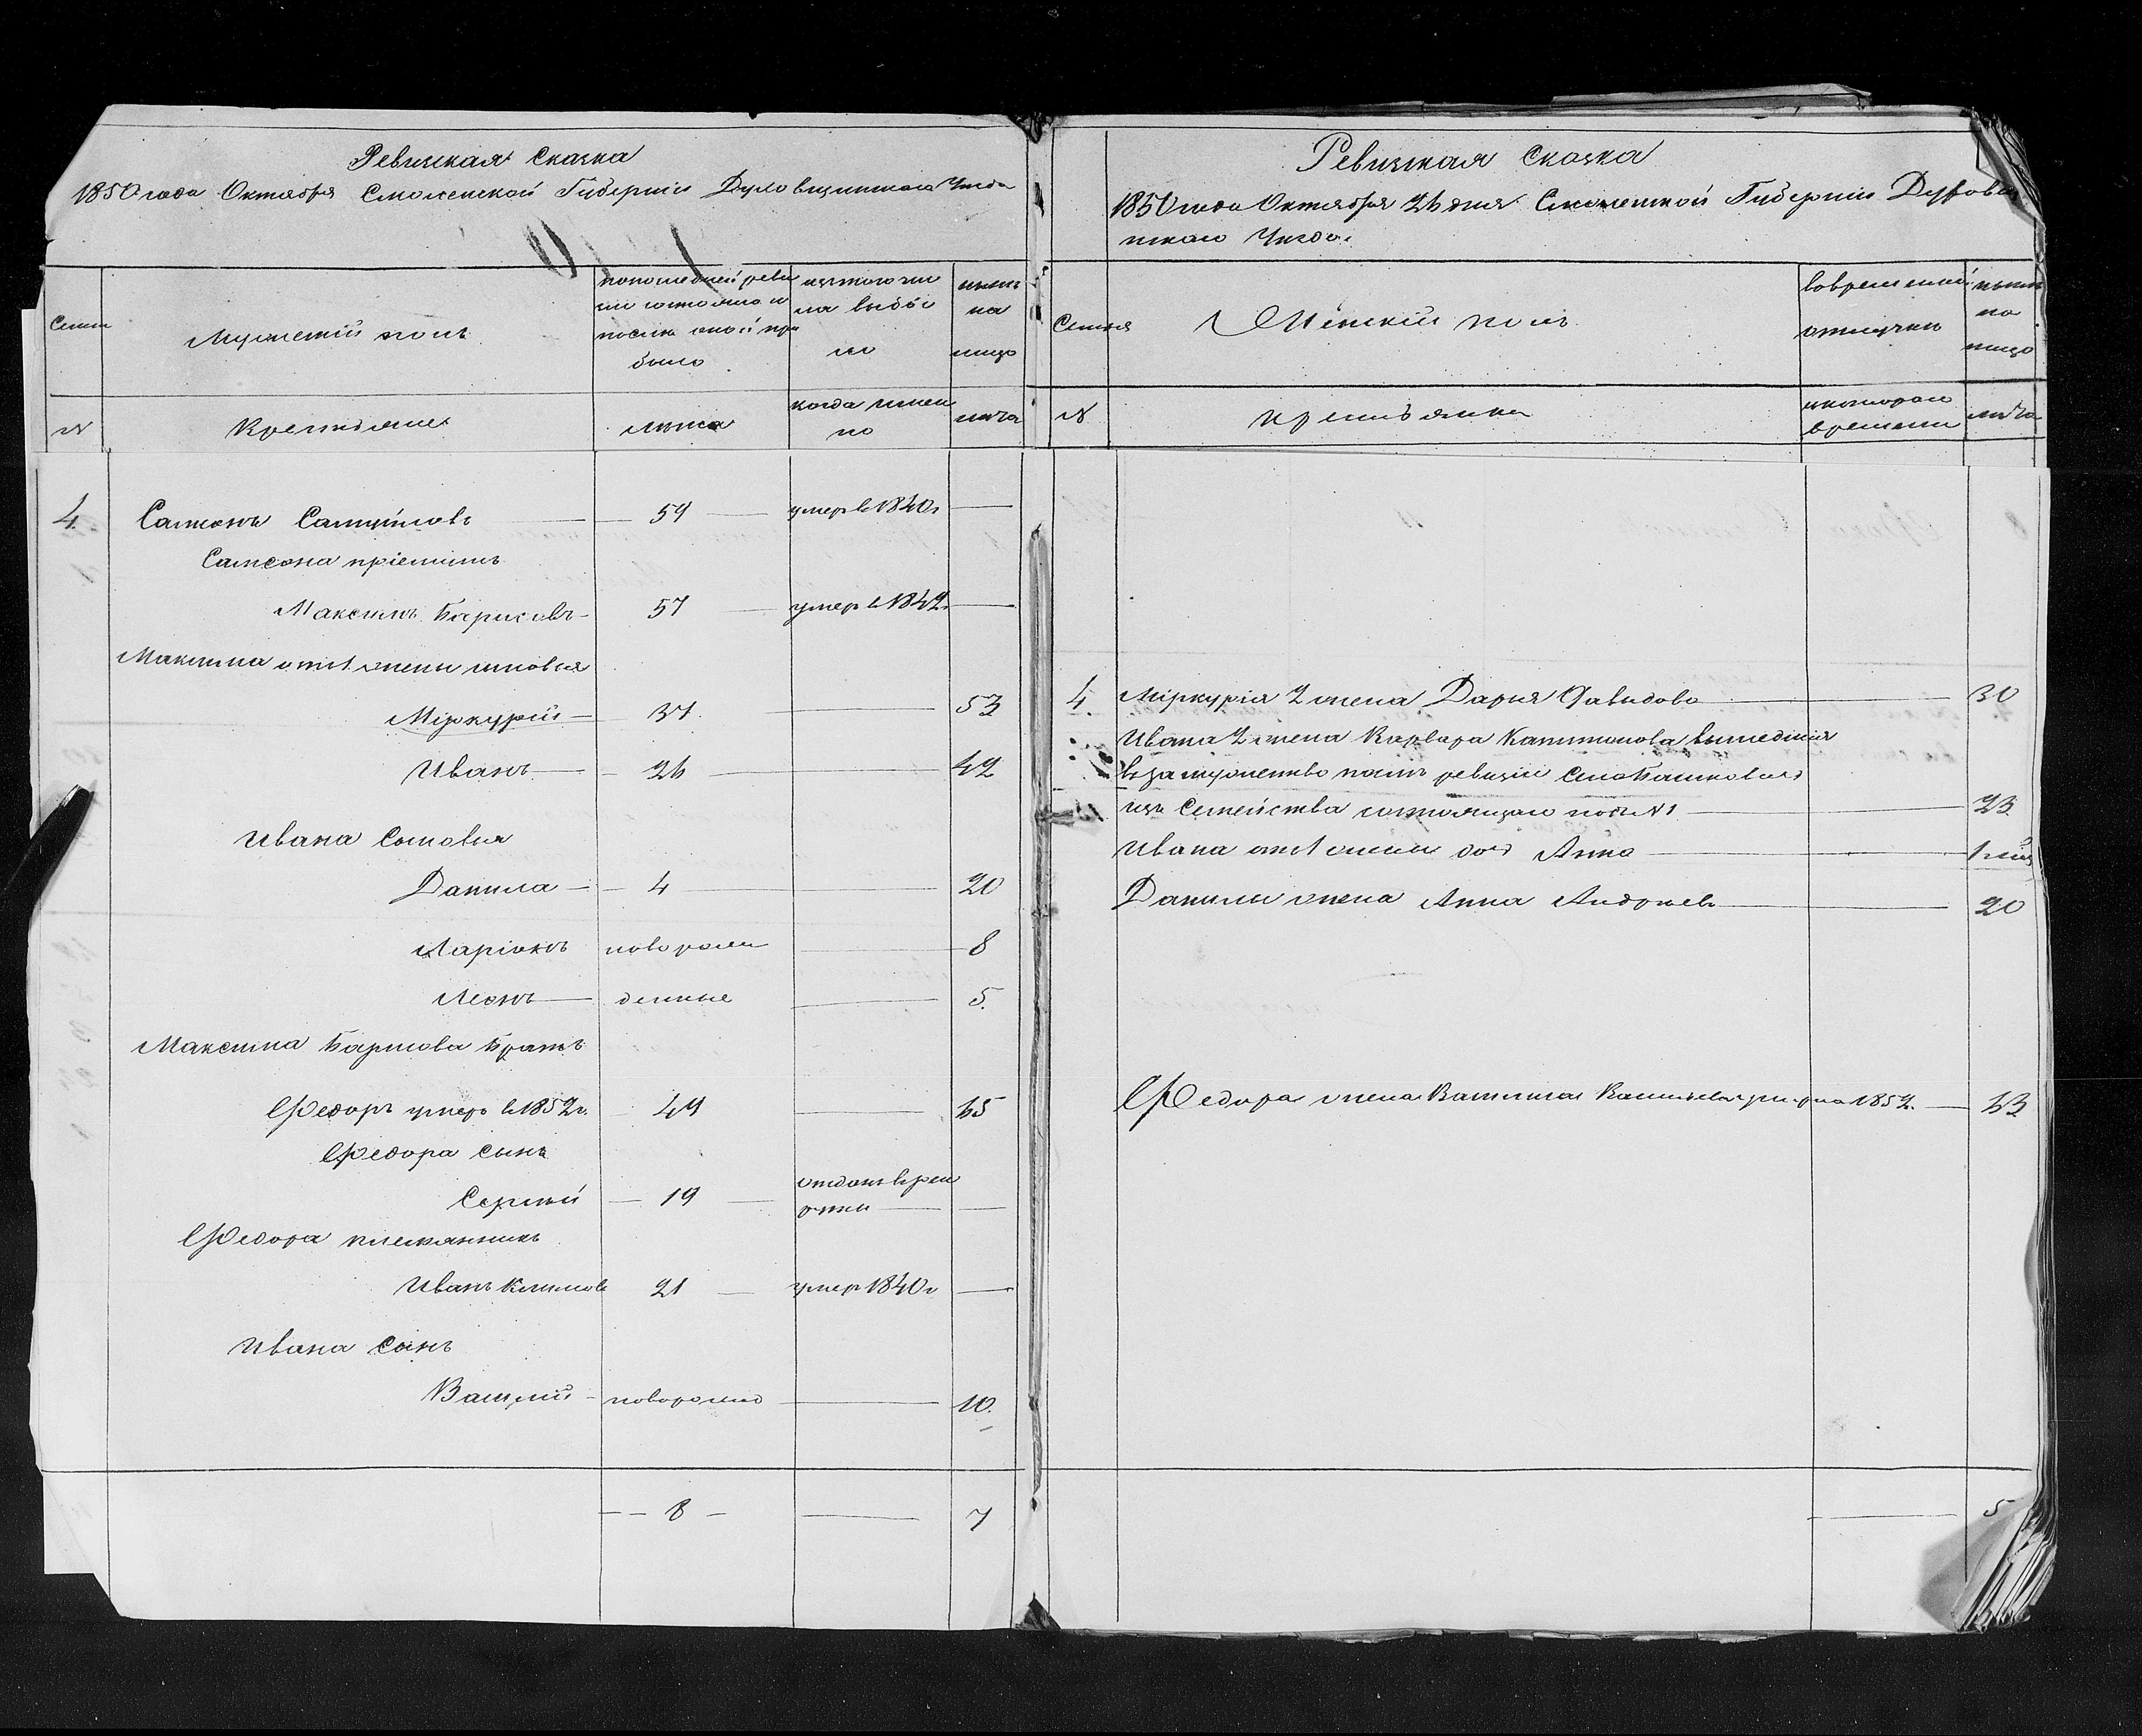 Ревизская Сказка
1850 года Октября Смоленской Губернiи Духовщинскаго Уезда
Семья
Мужескiй полъ
по последней реви
зiи состояло и
после оной при
было
изъ того чи
сла выбы
ло
ныне
на
лицо
№
Крестьяне
лета
когда имен
но
лета
4. Самсонъ Самуйловъ — 59 — умеръ в 1840 г —
Самсона прiемышъ
Максимъ Барисовъ — 57 — умеръ в 1842 —
Максима от 1 жены сыновья
Мiркурiй — 37. — 53
Иванъ — 26 — 42
Ивана Сыновья
Данила — 4 — 20
Ларiонъ новорож — 8
Леонъ — денные — 5.
Максима Барисова Братъ
Федоръ умеръ в 1852 г. 49 — 65
Федора Сынъ
Сергей — 19 — отданъ в рек
руты —
Федора племянникъ
Иванъ Климовъ 21 — умеръ 1840 г —
Ивана Сынъ
Василiй — новорожд — 10.
— 8 — — 7
Ревизская Сказка
1850 года Октября 26 дня Смоленской Губернiи Духовщи
нскаго Уезда.
Семья
Женскiй полъ
во временной
отлучке
ныне
на
лицо
№
Крестьянки
с котораго
времени
лета
4. Мiркурiя 2 жена Дарья Давыдова — 30
Ивана 2 жена Варвара Капитонова вышедшая
в замужество после ревизiи
изъ Семейства состоящаго подъ №1 — 23
Ивана от 1 жены дочь Анна —
Данилы жена Анна Андреева — 20
Федора жена Василиса Васильева умерла 1852. — 63
— 5